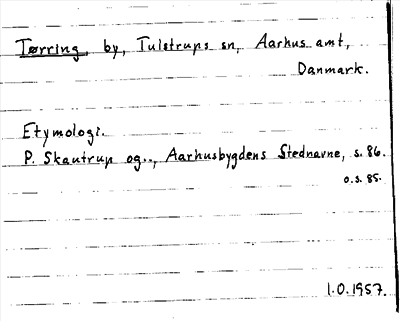 Tørring, by, Tulstrups sn, Aarhus amt,
Danmark.
Etymologi.
P. Skautrup og.., Aarhusbygdens Stednavne, s. 86.
o.s. 85.
1.0.1957.